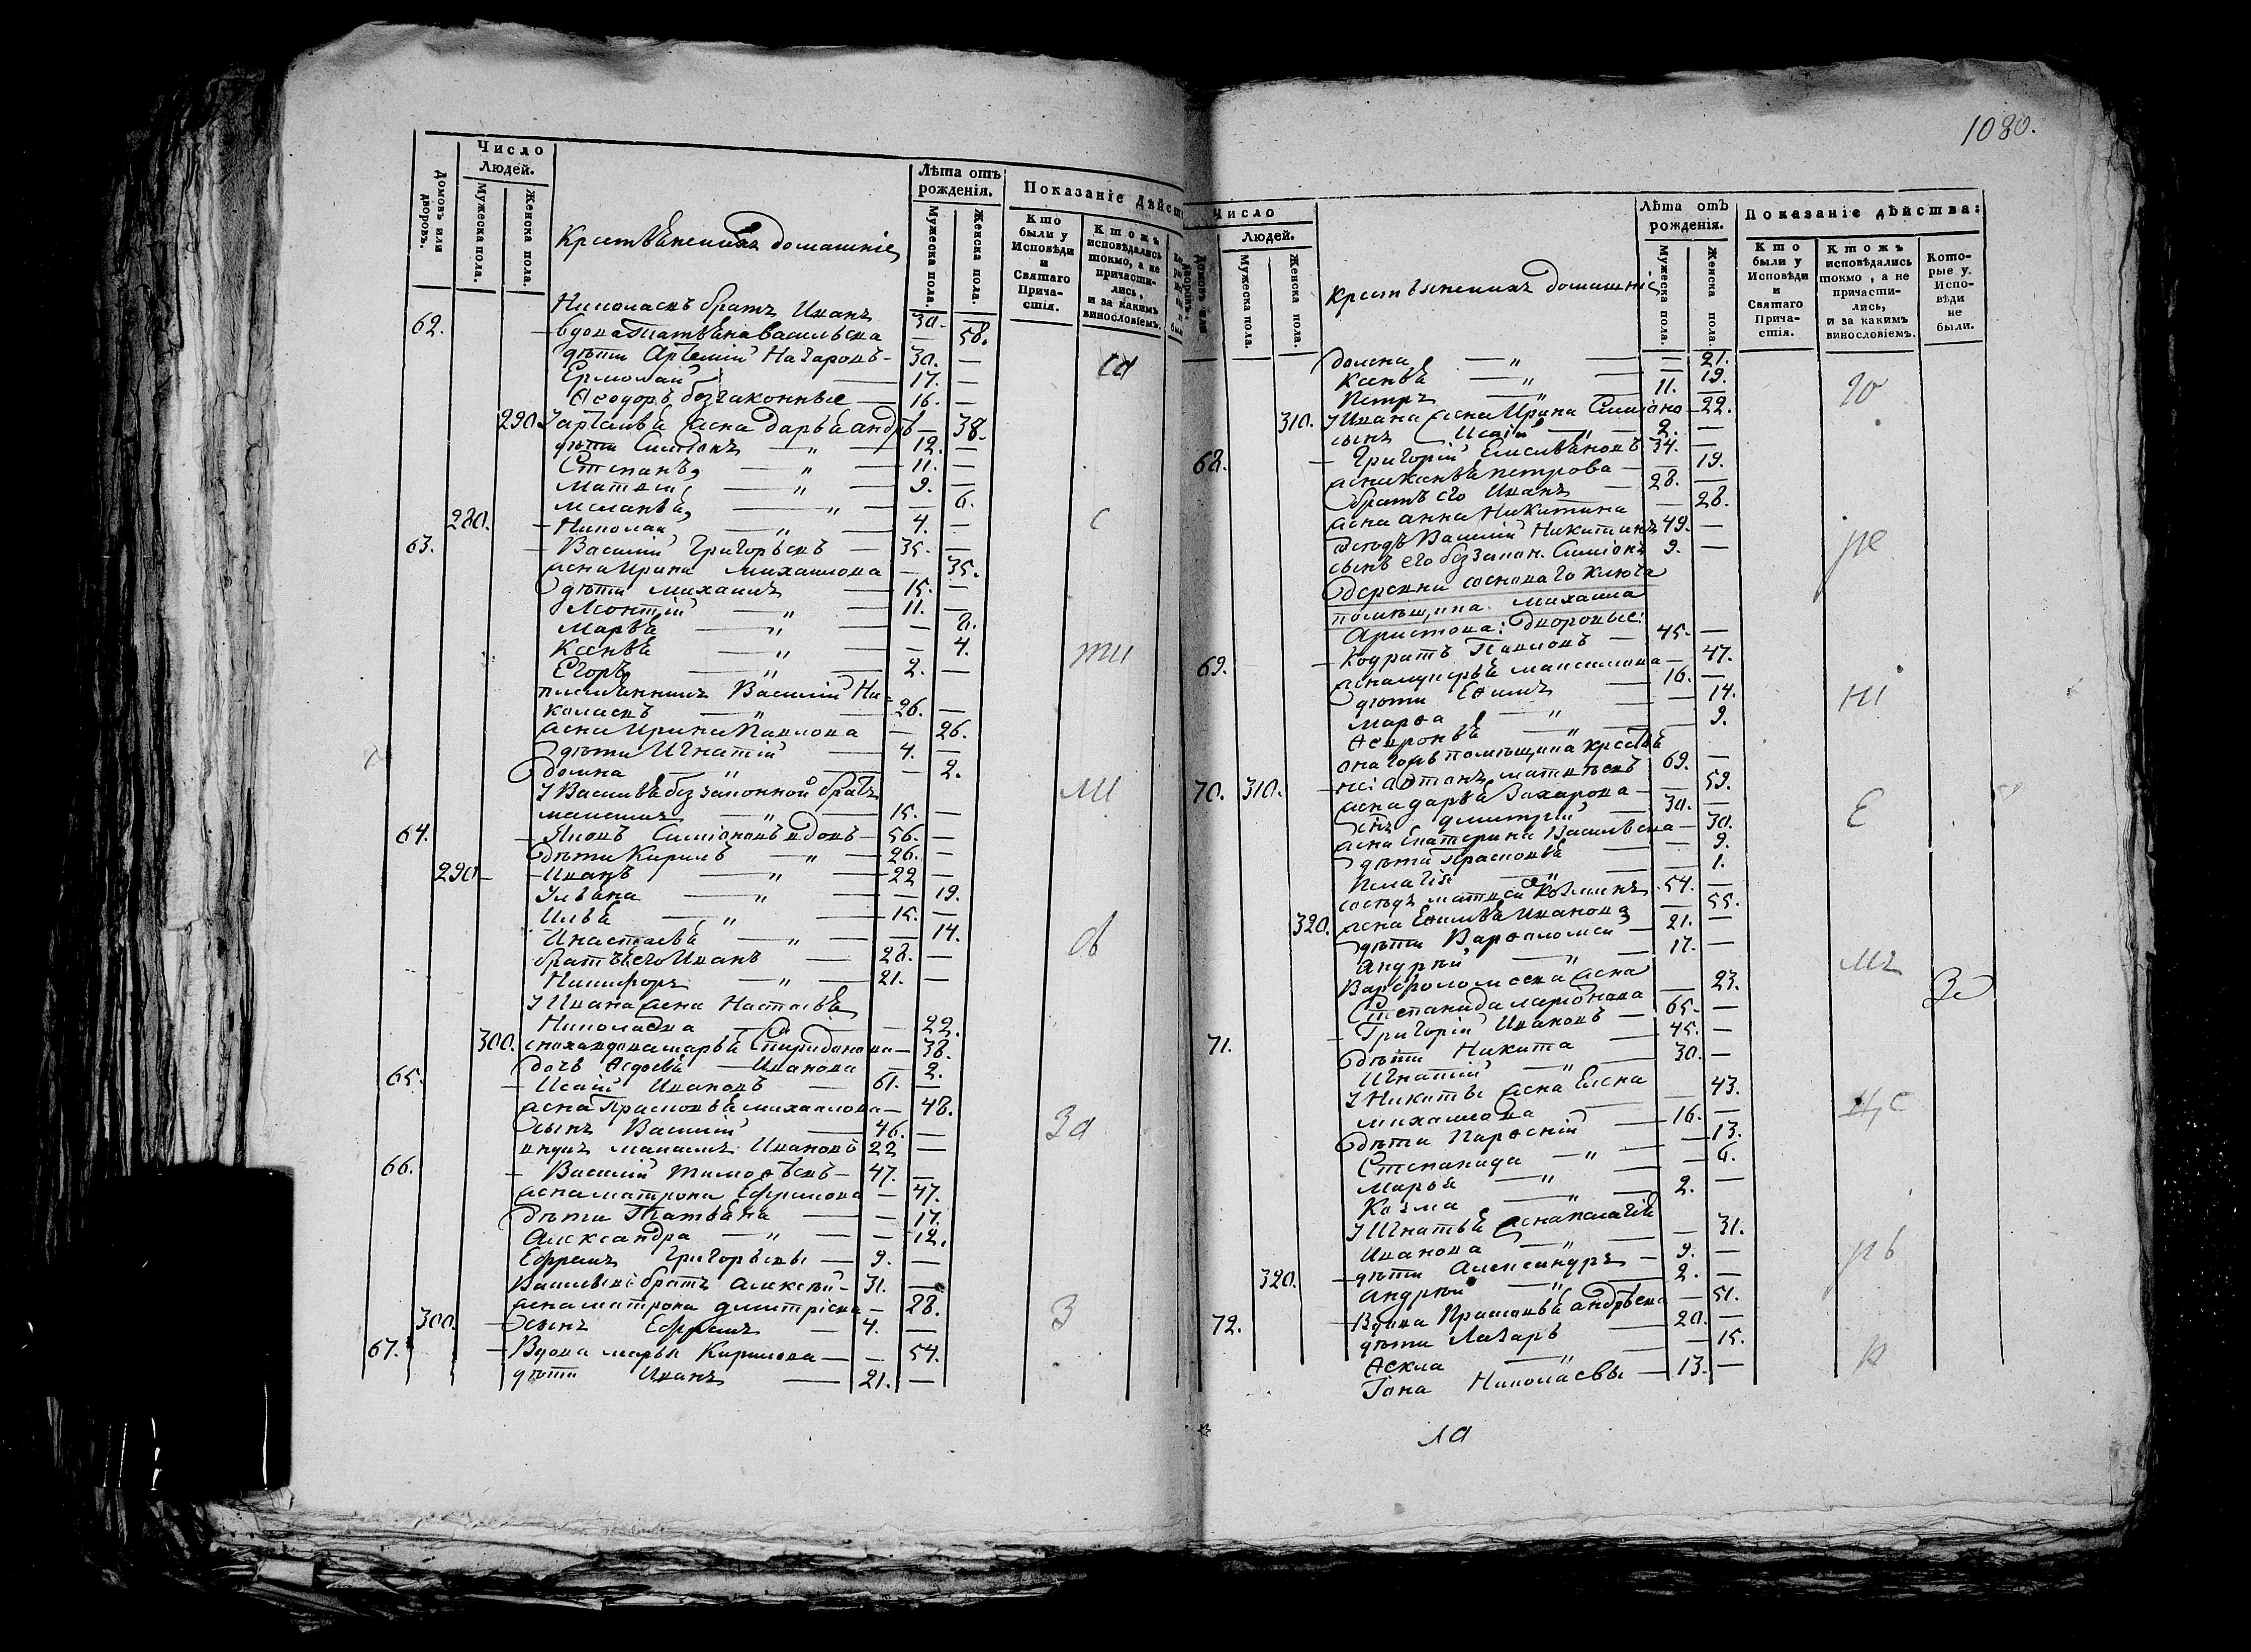 Число
Людей.
Домовъ или дворовъ.
Мужеска пола.
Женска пола.
Крестьянскихъ домашніе
Лѣта отъ
рожденія.
Мужеска пола.
Женска пола.
Показаніе дѣйст
Кто
были у
Исповѣди
и
Святаго
Прича-
стія.
Ктожъ
исповѣдались
токмо, а не
причасти-
лись,
и за какимъ
винословіемъ.
Николаевъ братъ Иванъ 30. —
62. вдова Татьяна Васильева — 58.
дѣти Артемій Назаровъ 30. —
Ермолай 17. —
Ѳеодоръ беззаконные 16. —
290. У Артемья жена Дарья Андр — 38.
дѣти Симіонъ — „ — 12. —
Степанъ — „ — 11. —
Матвей — „ — 9. —
Меланья — „ — — 6.
280. Николай — „ — 4. —
63. Василій Григорьевъ — 35. —
жена Ирина Михаилова — 35.
дѣти Михаилъ 15. —
Леонтій — „ — 11. —
Марья — „ — — 8.
Ксенья — „ — — 4.
Егоръ — „ — 2. —
племянникъ Василій Ни-
колаевъ — „ — 26. —
жена Ирина Павлова — 26.
дѣти Игнатій 4. —
Домна — „ — — 2.
У Василья беззаконной братъ
Максимъ — „ — 15. —
64. Яковъ Симіоновъ вдовъ — 56. —
дѣти Кирилъ — „ — 26. —
290. Иванъ — „ — 22 —
Ульяна — „ — — 19.
Илья — „ — 15. —
Анастасья — „ — — 14.
братья его Иванъ — 28. —
Никифоръ — „ — 21. —
У Ивана жена Настасья
Николаева — — 22.
300. сноха вдова Марья Спиридонова — 38.
дочь Ѳедосья — Иванова — 2.
65. Исай Ивановъ — 61. —
жена Прасковья Михаилова — 48.
сынъ Василій 46. —
внукъ Максимъ Ивановъ 22 —
66. Василій Тимоѳѣевъ — 47. —
жена Матрона Ефремова — 47.
дѣти Татьяна — — 17.
Александра — „ — — 12.
Ефремъ Григорьевы — 9. —
Васильевъ братъ Алексѣй — 31. —
жена Матрона Дмитріева — 28.
300. сынъ Ефремъ — 4. —
67. Вдова Марья Кирилова — — 54.
дѣти Иванъ — 21. —
1080.
Число
Людей.
Мужеска пола.
Женска пола.
Крестьянскихъ домашніе
Лѣта отъ
рожденія.
Мужеска пола.
Женска пола.
Показаніе дѣйства:
Кто
были у
Исповѣди
и
Святаго
Прича-
стія.
Ктожъ
исповѣдались
токмо, а не
причасти-
лись,
и за какимъ
винословіемъ.
Кото-
рые у
Испо-
вѣди
не
были.
Домна — „ — — 21.
Ксенья — „ — — 19.
Петръ — „ — 11. —
310. У Ивана жена Ирина Симіоно — 22.
сынъ Исаій — „ — 2. —
68. Григорій 34. —
жена Ксенья Петрова — 19.
братъ его Иванъ — 28. —
жена Анна Никитина — 28.
сосѣдъ Василій Никитинъ 49. —
сынъ его беззакон. Симіонъ 9. —
Деревни Соснового Ключа
помѣщика Михаила
Аристова: дворовые:
69. Кодратъ Павловъ — 45. —
жена Максимова — 47.
дѣти Ефимъ 16. —
Марѳа — „ — — 14.
Ѳевронья — „ — — 9.
онаго жъ помѣщика крестья
70. 310. не: Антонъ Матвѣевъ 69. —
жена Дарья Захарова — 59.
сынъ Дмитрій — 30. —
жена Екатерина Васильева — 30.
дѣти Прасковья — 9.
Пелагія — „ — — 1.
сосѣдъ Матвей Козминъ 54. —
320. жена Ефимья Иванова — 55.
дѣти Варѳоломей — 21. —
Андрѣй — „ — 17. —
Варфоломеева жена
Степанида — 23.
71. Григорій Ивановъ — 65. —
дѣти Никита — 45. —
Игнатій — „ — 30. —
У Никиты жена Елена
Михаилова — 43.
дѣти 16. —
Степанида — „ — — 13.
Марья — „ — — 6.
Козма — „ — 2. —
У Игнатья жена Пелагія
Иванова — „ — — 31.
320. дѣти Александръ — 9. —
Андрѣй — „ — 2. —
72. Вдова Прасковья Андрѣева — 51.
дѣти Лазарь — 20. —
Ѳекла — „ — — 15.
Іона Николаевы — 13. —